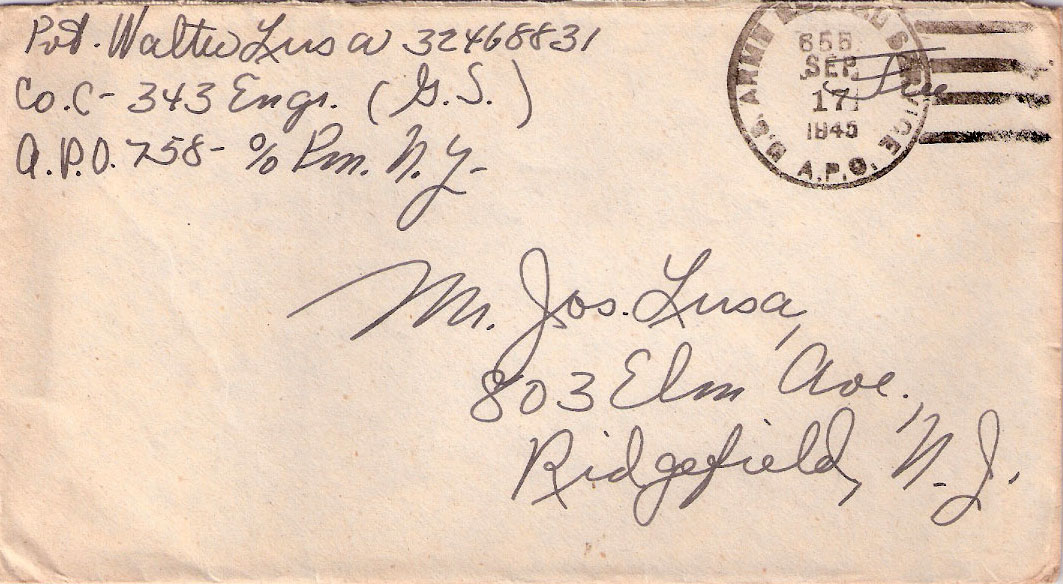 Pvt. Walter Lusa 32468831
Co. C - 343 Engr. (G.S.)
A.P.O. 758 - % Pm. N.Y. -
U.S. ARMY SERVICE
SEP
17
1945
A.P.O.
Free
Mr. Jos. Lusa,
803 Elm Ave.,
Ridgefield, N.J.